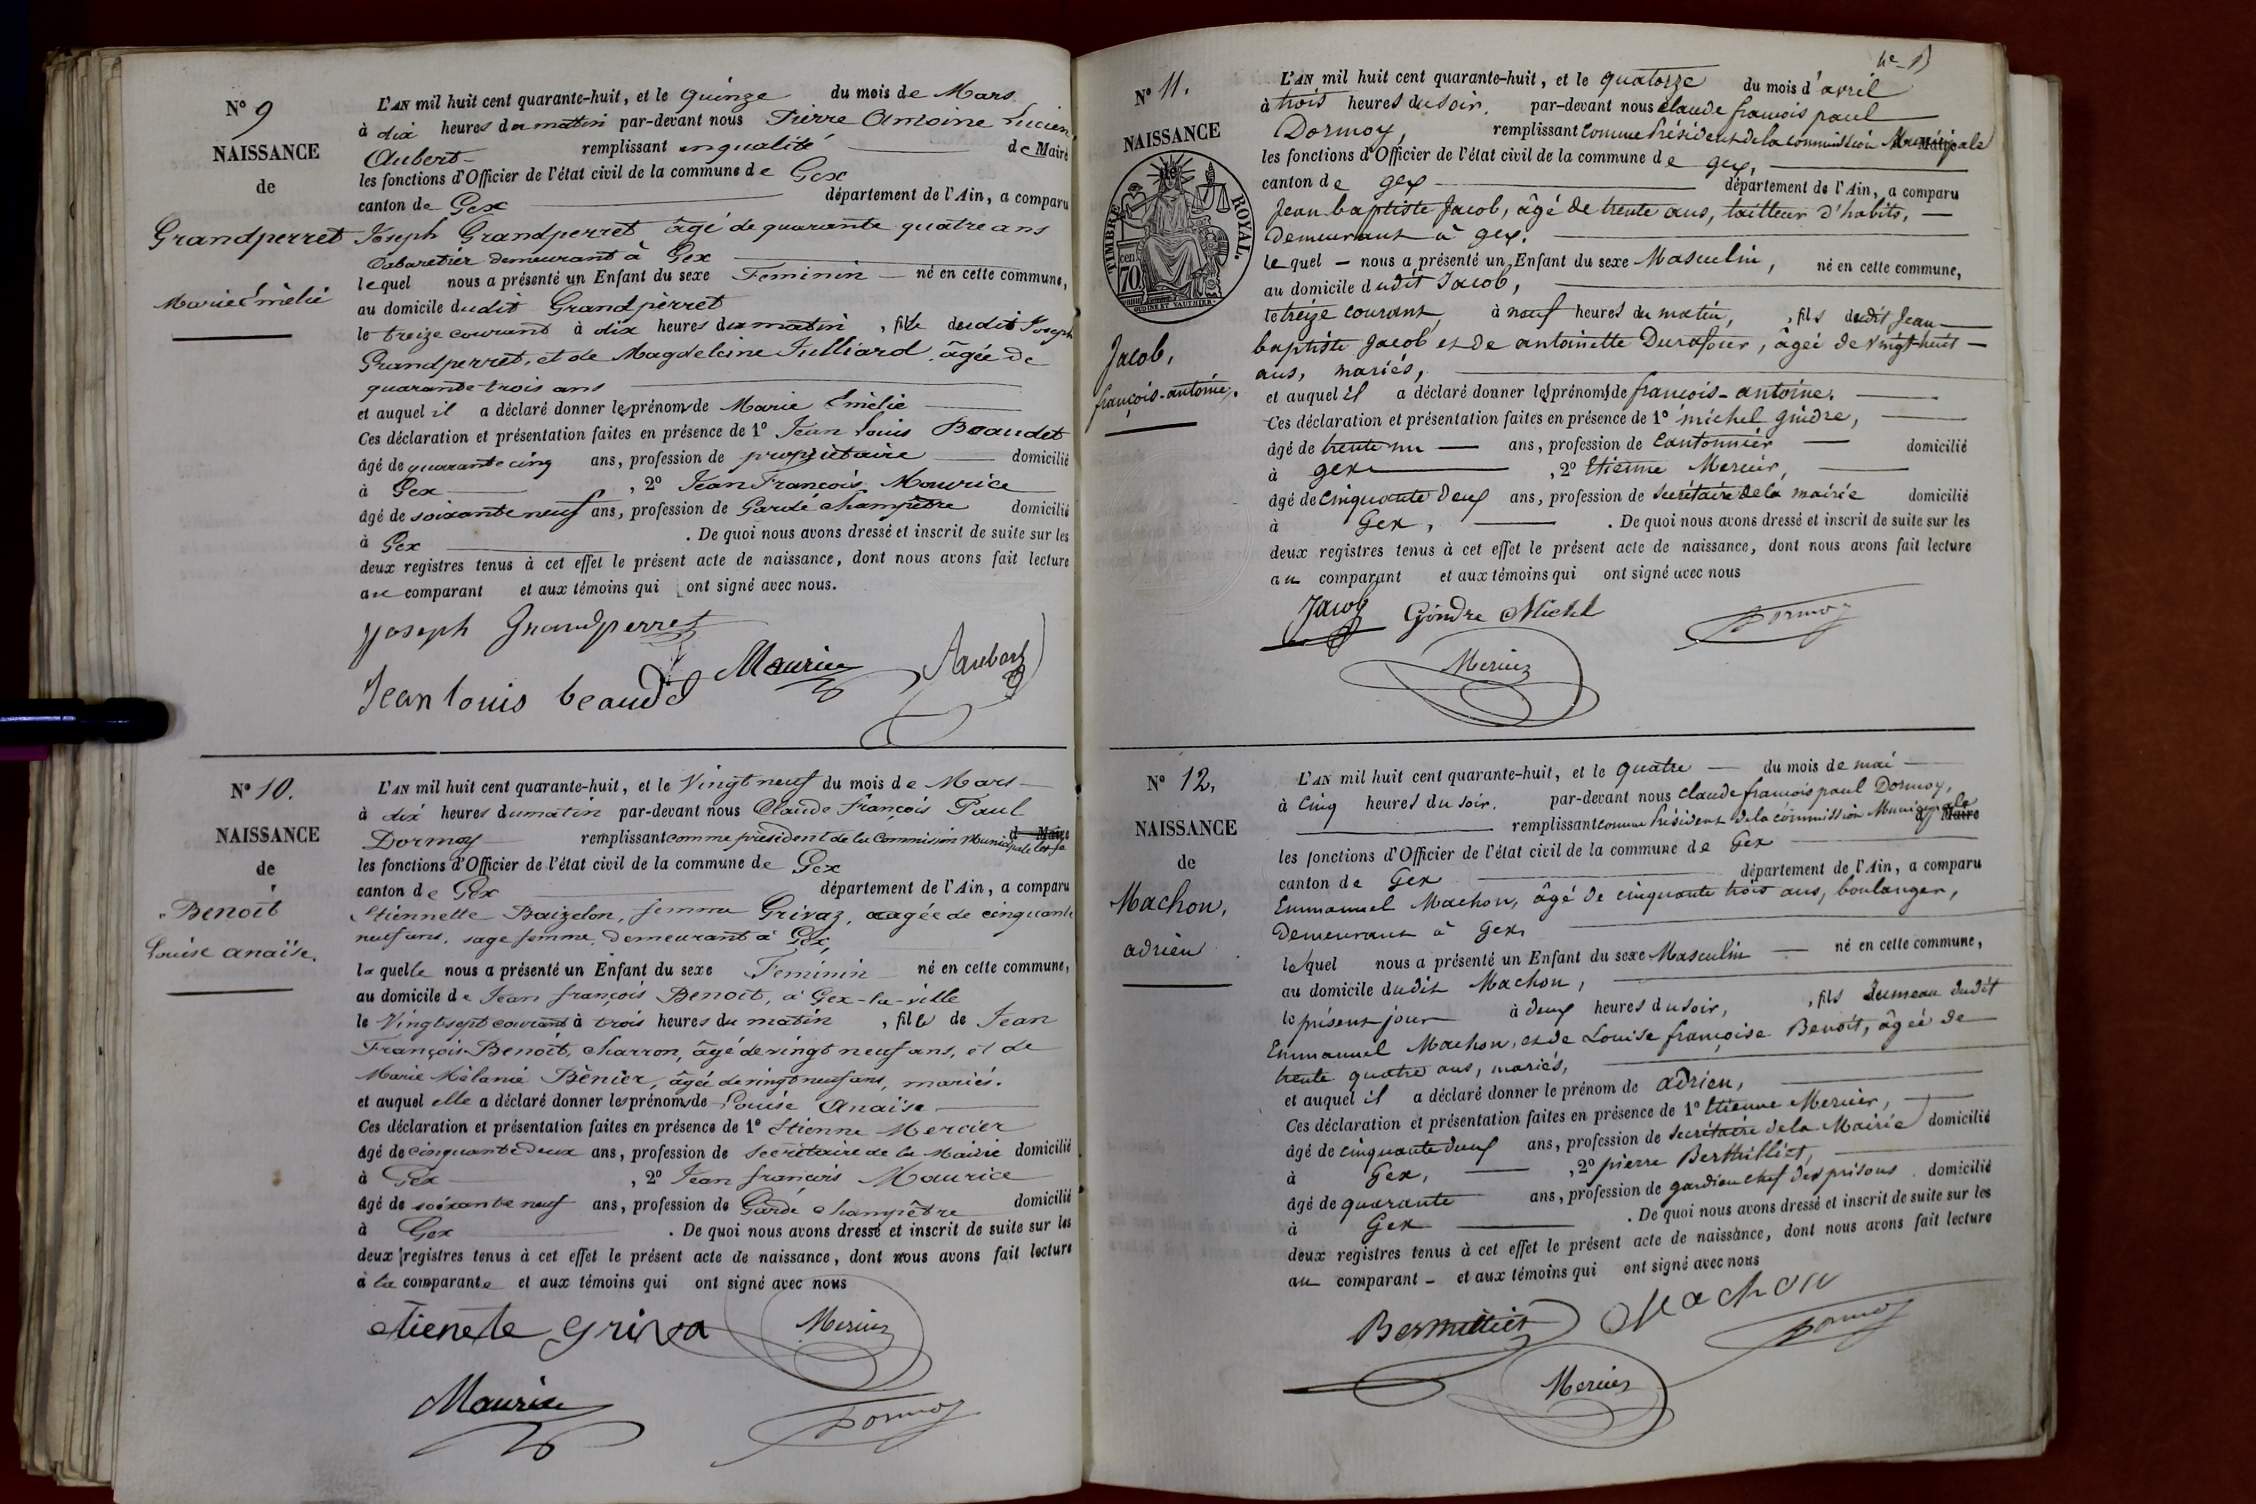 N° 9
NAISSANCE
de
Grandperret
Marie Émélie
L'AN mil huit cent quarante-huit, et le quinze du mois de Mars
à dix heures du matin par-devant nous Pierre Antoine Lucien
Aubert remplissant en qualité de Maire
les fonctions d'Officier de l'état civil de la commune de Gex
canton de Gex département de l'Ain, a comparu
Joseph Grandperret âgé de quarante quatre ans
Cabaretier demeurant à Gex
lequel nous a présenté un Enfant du sexe Feminin né en cette commune,
au domicile dudit Grandperret
le treize courant à dix heures du matin, fille dudit Joseph
Grandperret, et de Magdeleine Julliard âgée de
quarante-trois ans
et auquel il a déclaré donner les prénoms de Marie Émélie
Ces déclaration et présentation faites en présence de 1° Jean Louis Beaudet
âgé de quarante cinq ans, profession de propriétaire domicilié
à Gex, 2° Jean François Maurice
âgé de soixante neuf ans, profession de Garde champêtre domicilié
à Gex. De quoi nous avons dressé et inscrit de suite sur les
deux registres tenus à cet effet le présent acte de naissance, dont nous avons fait lecture
au comparant et aux témoins qui ont signé avec nous.
Joseph Grandperret
Jean louis beaudd Maurice Aubert
N° 10.
NAISSANCE
de
Benoit
Louise anaïse.
L'AN mil huit cent quarante-huit, et le Vingt neuf du mois de Mars
à dix heures du matin par-devant nous Claude françois Paul
Dormoy remplissant comme président de la Commission Municipale d Maire
les fonctions d'Officier de l'état civil de la commune de Gex
canton de Gex département de l'Ain, a comparu
Etiennette Baizelon, femme Grivaz, agée de cinquante
neuf ans, sage femme, demeurant à Gex,
laquelle nous a présenté un Enfant du sexe Feminin né en cette commune,
au domicile de Jean françois Benoit, à Gex-la-ville
le Vingt sept courant à trois heures du matin, fille de Jean
François Benoit, charron, âgé de vingt neuf ans, et de
Marie Mélanie Bènier, âgée de vingt neuf ans, mariés.
et auquel elle a déclaré donner les prénoms de Louise Anaïse
Ces déclaration et présentation faites en présence de 1° Etienne Mercier
âgé de cinquante deux ans, profession de Secrétaire de la Mairie domicilié
à Gex, 2° Jean françois Maurice
âgé de soixante neuf ans, profession de Garde champêtre domicilié
à Gex. De quoi nous avons dressé et inscrit de suite sur les
deux registres tenus à cet effet le présent acte de naissance, dont nous avons fait lecture
à la comparante et aux témoins qui ont signé avec nous
etienete griva Mercier
Maurice Dormoy
N° 11.
NAISSANCE
de
TIMBRE ROYAL.
cen 70
OUDINE ET VAUTHIER
Jacob,
françois-antoine.
L'AN mil huit cent quarante-huit, et le quatorze du mois d'avril
à trois heures du soir. par-devant nous Claude françois paul
Dormoy, remplissant Comme Président de la commission Municipale Maire
les fonctions d'Officier de l'état civil de la commune de gex,
canton de gex département de l'Ain, a comparu
Jean baptiste Jacob, âgé de trente ans, tailleur d'habits,
Demeurant à gex.
lequel nous a présenté un Enfant du sexe Masculin, né en cette commune,
au domicile dudit Jacob,
le treize courant, à neuf heures du matin, fils dudit Jean
baptiste Jacob et de antoinette Durafour, âgée de vingt-huit
ans, mariés,
et auquel il a déclaré donner les prénoms de françois-antoine.
Ces déclaration et présentation faites en présence de 1° michel gindre,
âgé de trente un ans, profession de Cantonnier domicilié
à gex, 2° Etienne Mercier,
âgé de cinquante deux ans, profession de Secrétaire de la mairie domicilié
à Gex,. De quoi nous avons dressé et inscrit de suite sur les
deux registres tenus à cet effet le présent acte de naissance, dont nous avons fait lecture
au comparant et aux témoins qui ont signé avec nous
Jacob Gindre Michel Dormoy
Mercier
N° 12.
NAISSANCE
de
Machon,
adrien
L'AN mil huit cent quarante-huit, et le quatre du mois de mai
à Cinq heures du soir. par-devant nous claude françois paul Dormoy,
remplissant comme Président de la commission Municipale d Maire
les fonctions d'Officier de l'état civil de la commune de Gex
canton de Gex département de l'Ain, a comparu
Emmanuel Machon, âgé de cinquante trois ans, boulanger,
Demeurant à Gex,
lequel nous a présenté un Enfant du sexe Masculin né en cette commune,
au domicile dudit Machon,
le présent jour à deux heures du soir, fils Jumeau dudit
Emmanuel Machon, et de Louise françoise Benoit, âgée de
trente quatre ans, mariés,
et auquel il a déclaré donner le prénom de adrien,
Ces déclaration et présentation faites en présence de 1° Etienne Mercier,
âgé de cinquante deux ans, profession de Secrétaire de la Mairie domicilié
à Gex,, 2° pierre Berthilliet,
âgé de quarante ans, profession de gardien chef des prisons domicilié
à Gex. De quoi nous avons dressé et inscrit de suite sur les
deux registres tenus à cet effet le présent acte de naissance, dont nous avons fait lecture
au comparant et aux témoins qui ont signé avec nous
Berthilliet Machon Dormoy
Mercier